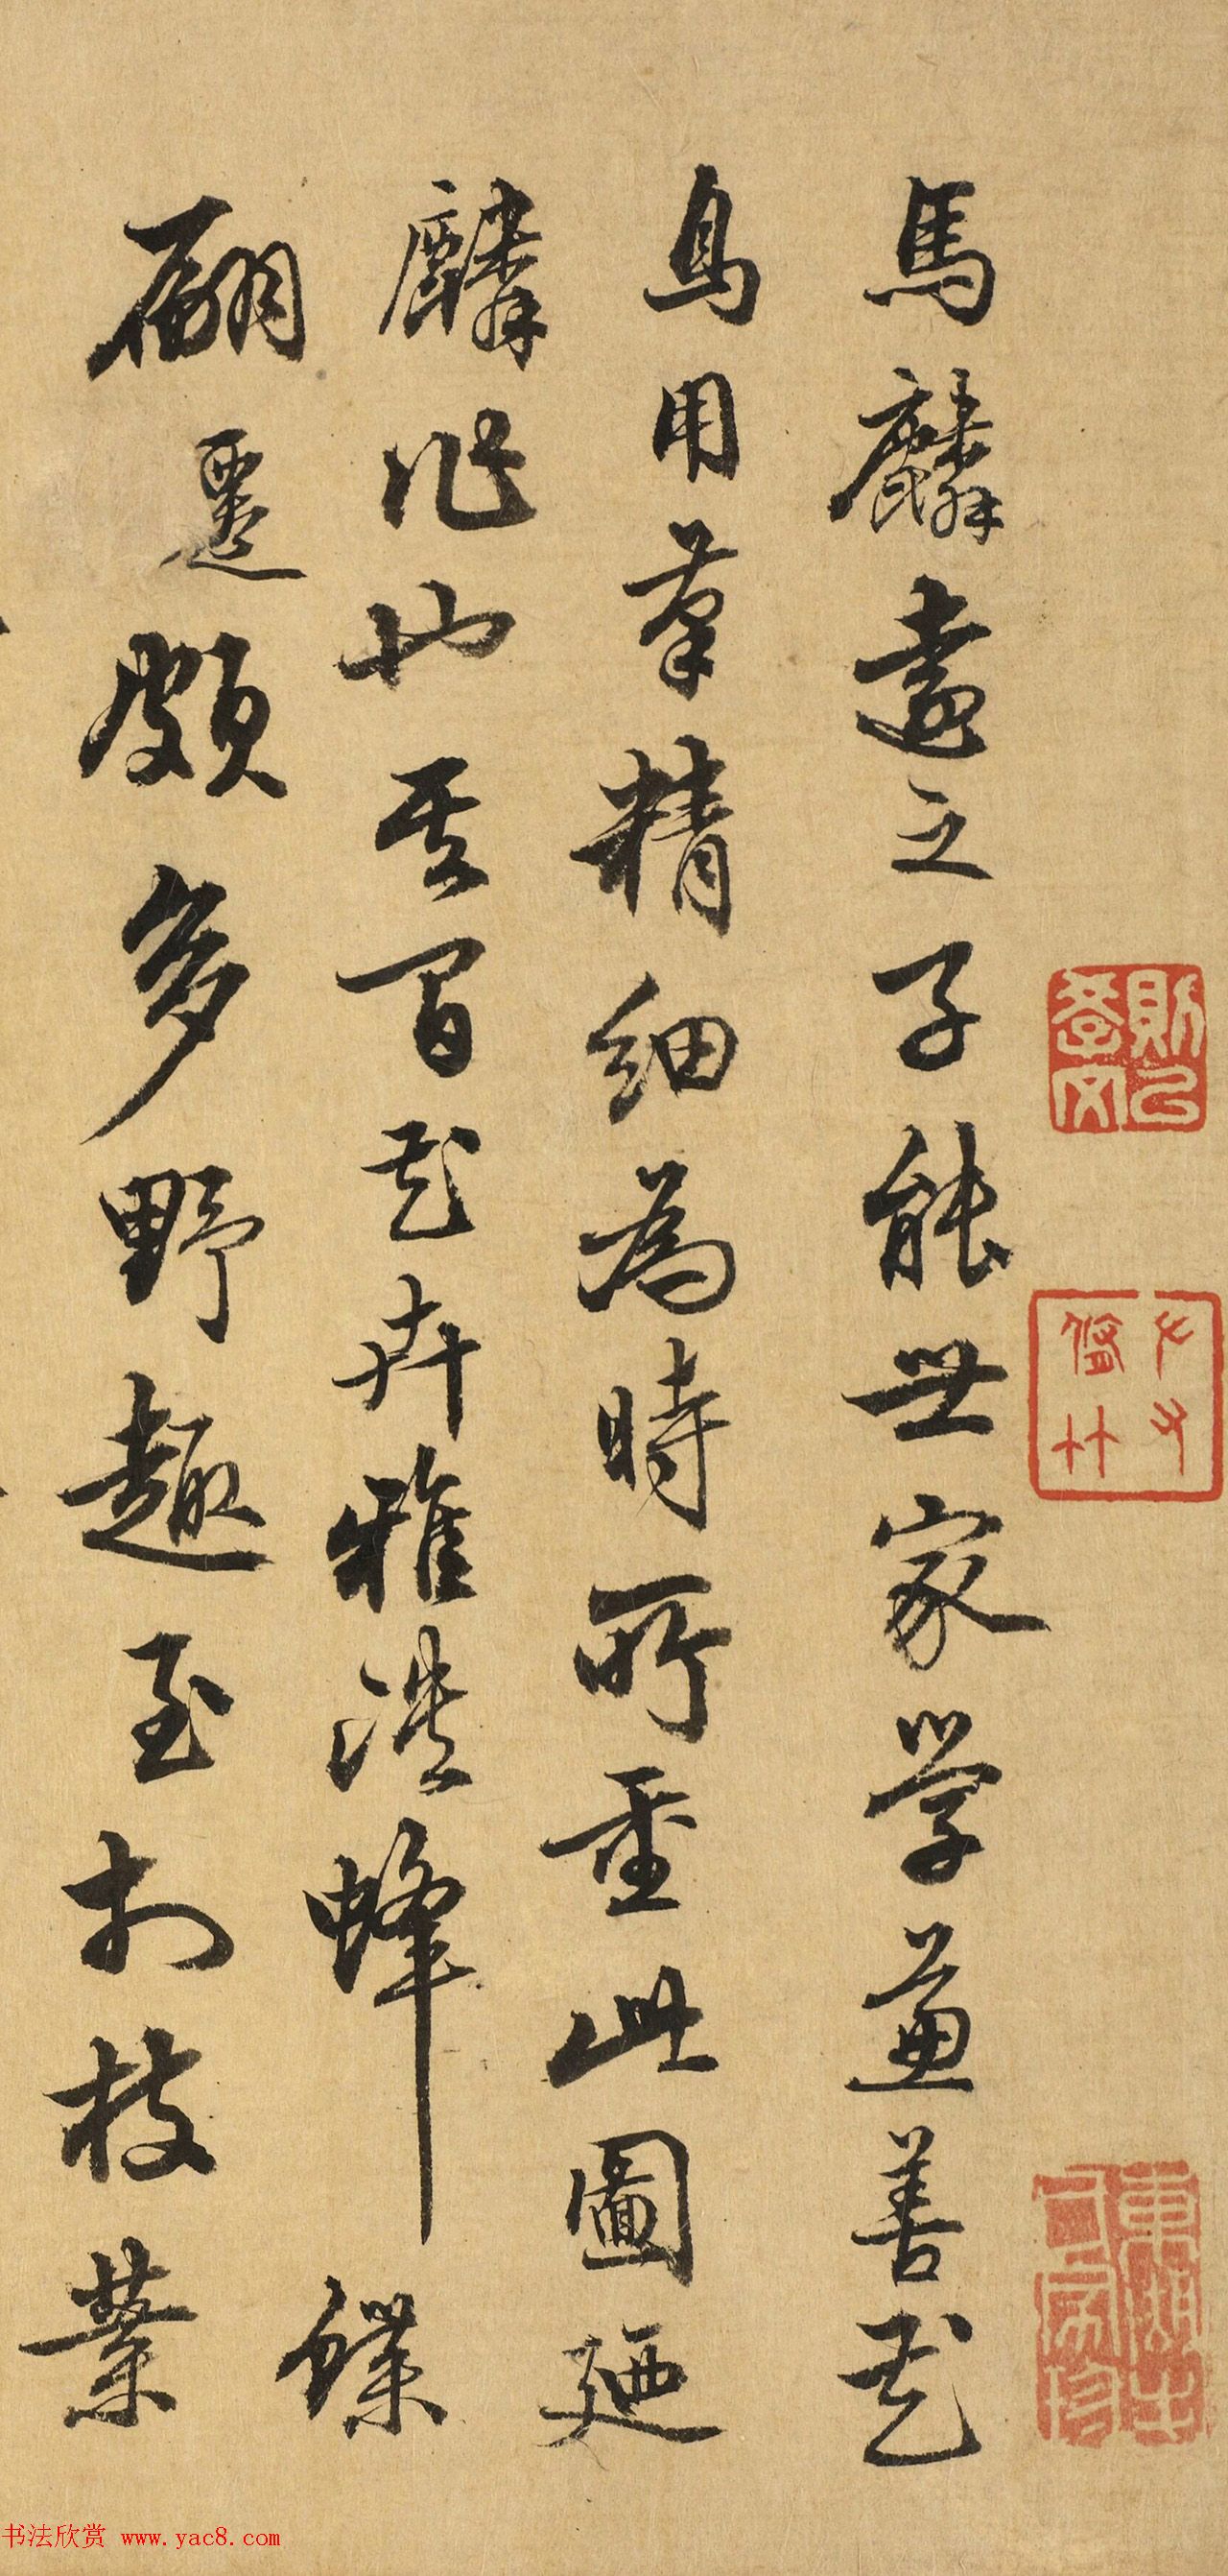 馬麟遠之子能世家學兼善花
鳥用筆精細為時所重此圖廼
麟作也其間花卉雅淡蜂蝶
翩躚頗多野趣至於枝葉
則以學文
友竹
书法欣赏 www.yac8.com